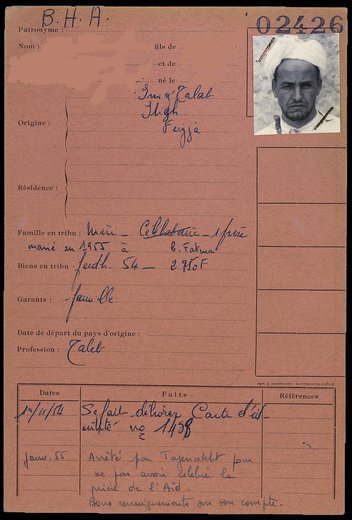 B.H.A.
02426
Patronyme :
Nom :
fils de
et de
né le
Origine :
Résidence :
Famille en tribu : Mère - Célibataire - 1 frère
marié en 1955 à B. Fatma
Biens en tribu : 54 - 2750F
Garants : famille
Date de départ du pays d'origine :
Profession : Taleb
Dates Faits Références
Se fait délivrer Carte d'id-
entité no 1498
Janv. 55 Arrêté par Tazenakht pour
ne pas avoir célébré la
prière de l'Aïd
Bons renseignements sur son compte.